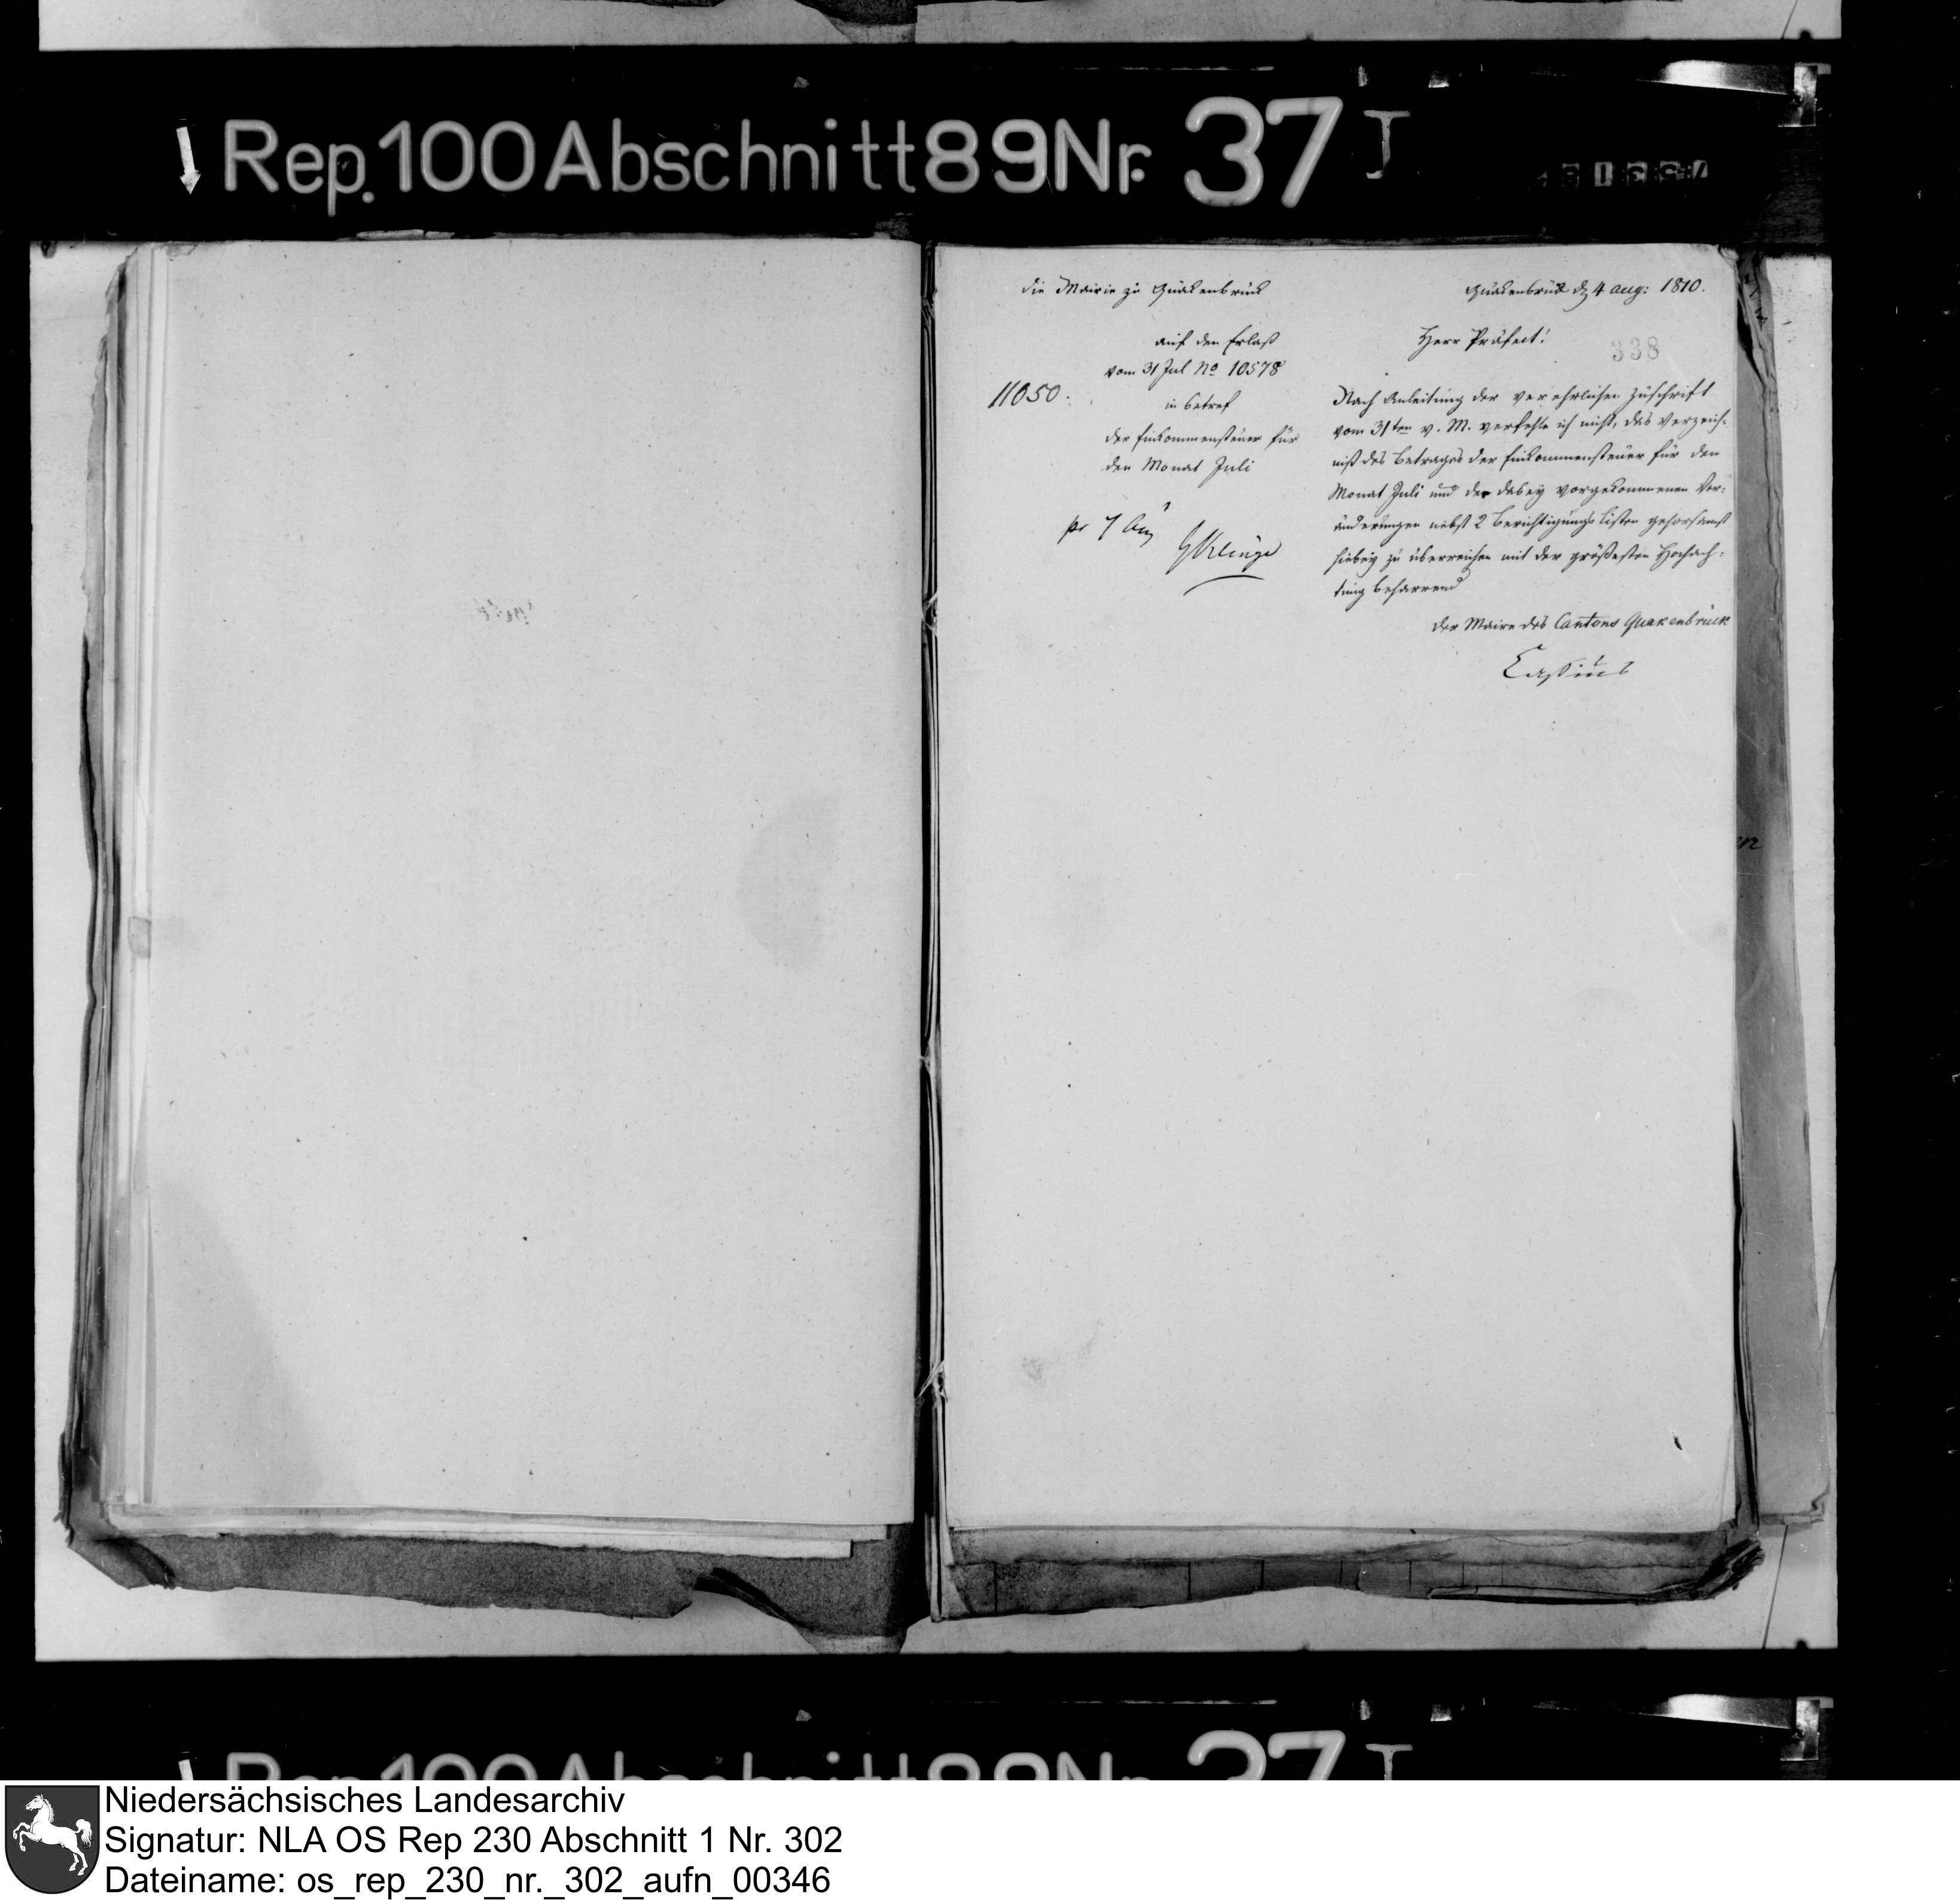 Rep.100 Abschnitt 89 Nr. 37 I
die Mairie zu Quakenbrück
auf den Erlaß
vom 31 Jul No 10578
11050.
in betref
der Einkommensteuer für
den Monat Juli
pr 7 Aug
Quakenbrück d 4 aug: 1810.
Herr Präfect!
338
Nach Anleitung der verehrlichen Zuschrift
vom 31ten v. M. verfehle ich nicht, das Verzeich-
niß des Betrages der Einkommensteuer für den
Monat Juli und der dabey vorgekommenen Ver-
änderungen nebst 2 Berichtigungs Listen gehorsamst
hiebey zu überreichen mit der größesten Hochach-
tung beharrend
der Maire des Cantons Quakenbrück
Cassius
Rep.100 Abschnitt 89 Nr. 37 I
Niedersächsisches Landesarchiv
Signatur: NLA OS Rep 230 Abschnitt 1 Nr. 302
Dateiname: os_rep_230_nr._302_aufn_00346